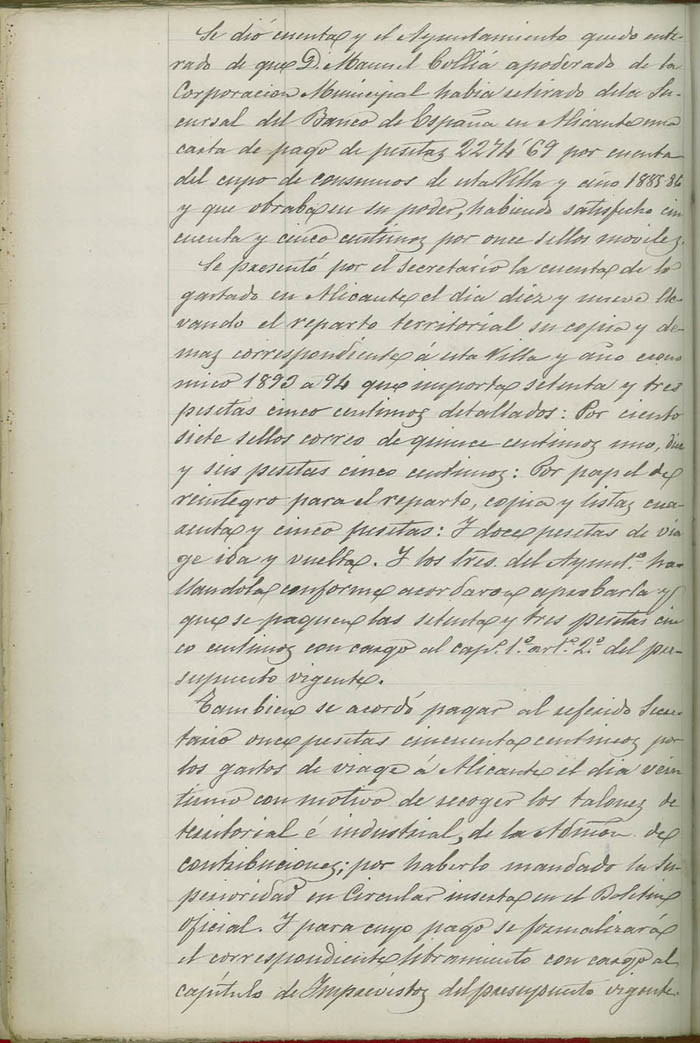 Se dió cuenta y el Ayuntamiento quedo ente-
rado de que D. Manuel Colliá apoderado de la
Corporacion Municipal habia retirado de la Su-
cursal del Banco de España en Alicante una
carta de pago de pesetas 2274'69 por cuenta
del cupo de consumos de esta Villa y año 1885 86
y que obraba en su poder, habiendo satisfecho cin
cuenta y cinco centimos por once sellos moviles.
Se presentó por el Secretario la cuenta de lo
gastado en Alicante el dia diez y nueve lle-
vando el reparto territorial su copia y de-
mas correspondiente á esta Villa y año econo
mico 1893 a 94 que importa setenta y tres
pesetas cinco centimos detallados: Por ciento
siete sellos correo de quince centimos uno, diez
y seis pesetas cinco centimos: Por papel de
reintegro para el reparto, copia y listas cua-
renta y cinco pesetas: Y doce pesetas de via
ge ida y vuelta. Y los tres. del Ayunt.º ha-
llandola conforme acordaron aprobarla y
que se paguen las setenta y tres pesetas cin
co centimos con cargo al cap.º 1.º art.º 2.º del pre-
supuesto vigente.
Tambien se acordó pagar al referido Secre-
tario once pesetas cincuenta centimos por
los gastos de viage á Alicante el dia vein
tiuno con motivo de recoger los talones de
territorial é industrial, de la Admon. de
contribuciones; por haberlo mandado la Su-
perioridad en Circular inserta en el Boletin
oficial. Y para cuyo pago se formalizará
el correspondiente libramiento con cargo al
capítulo de Imprevistos del presupuesto vigente.